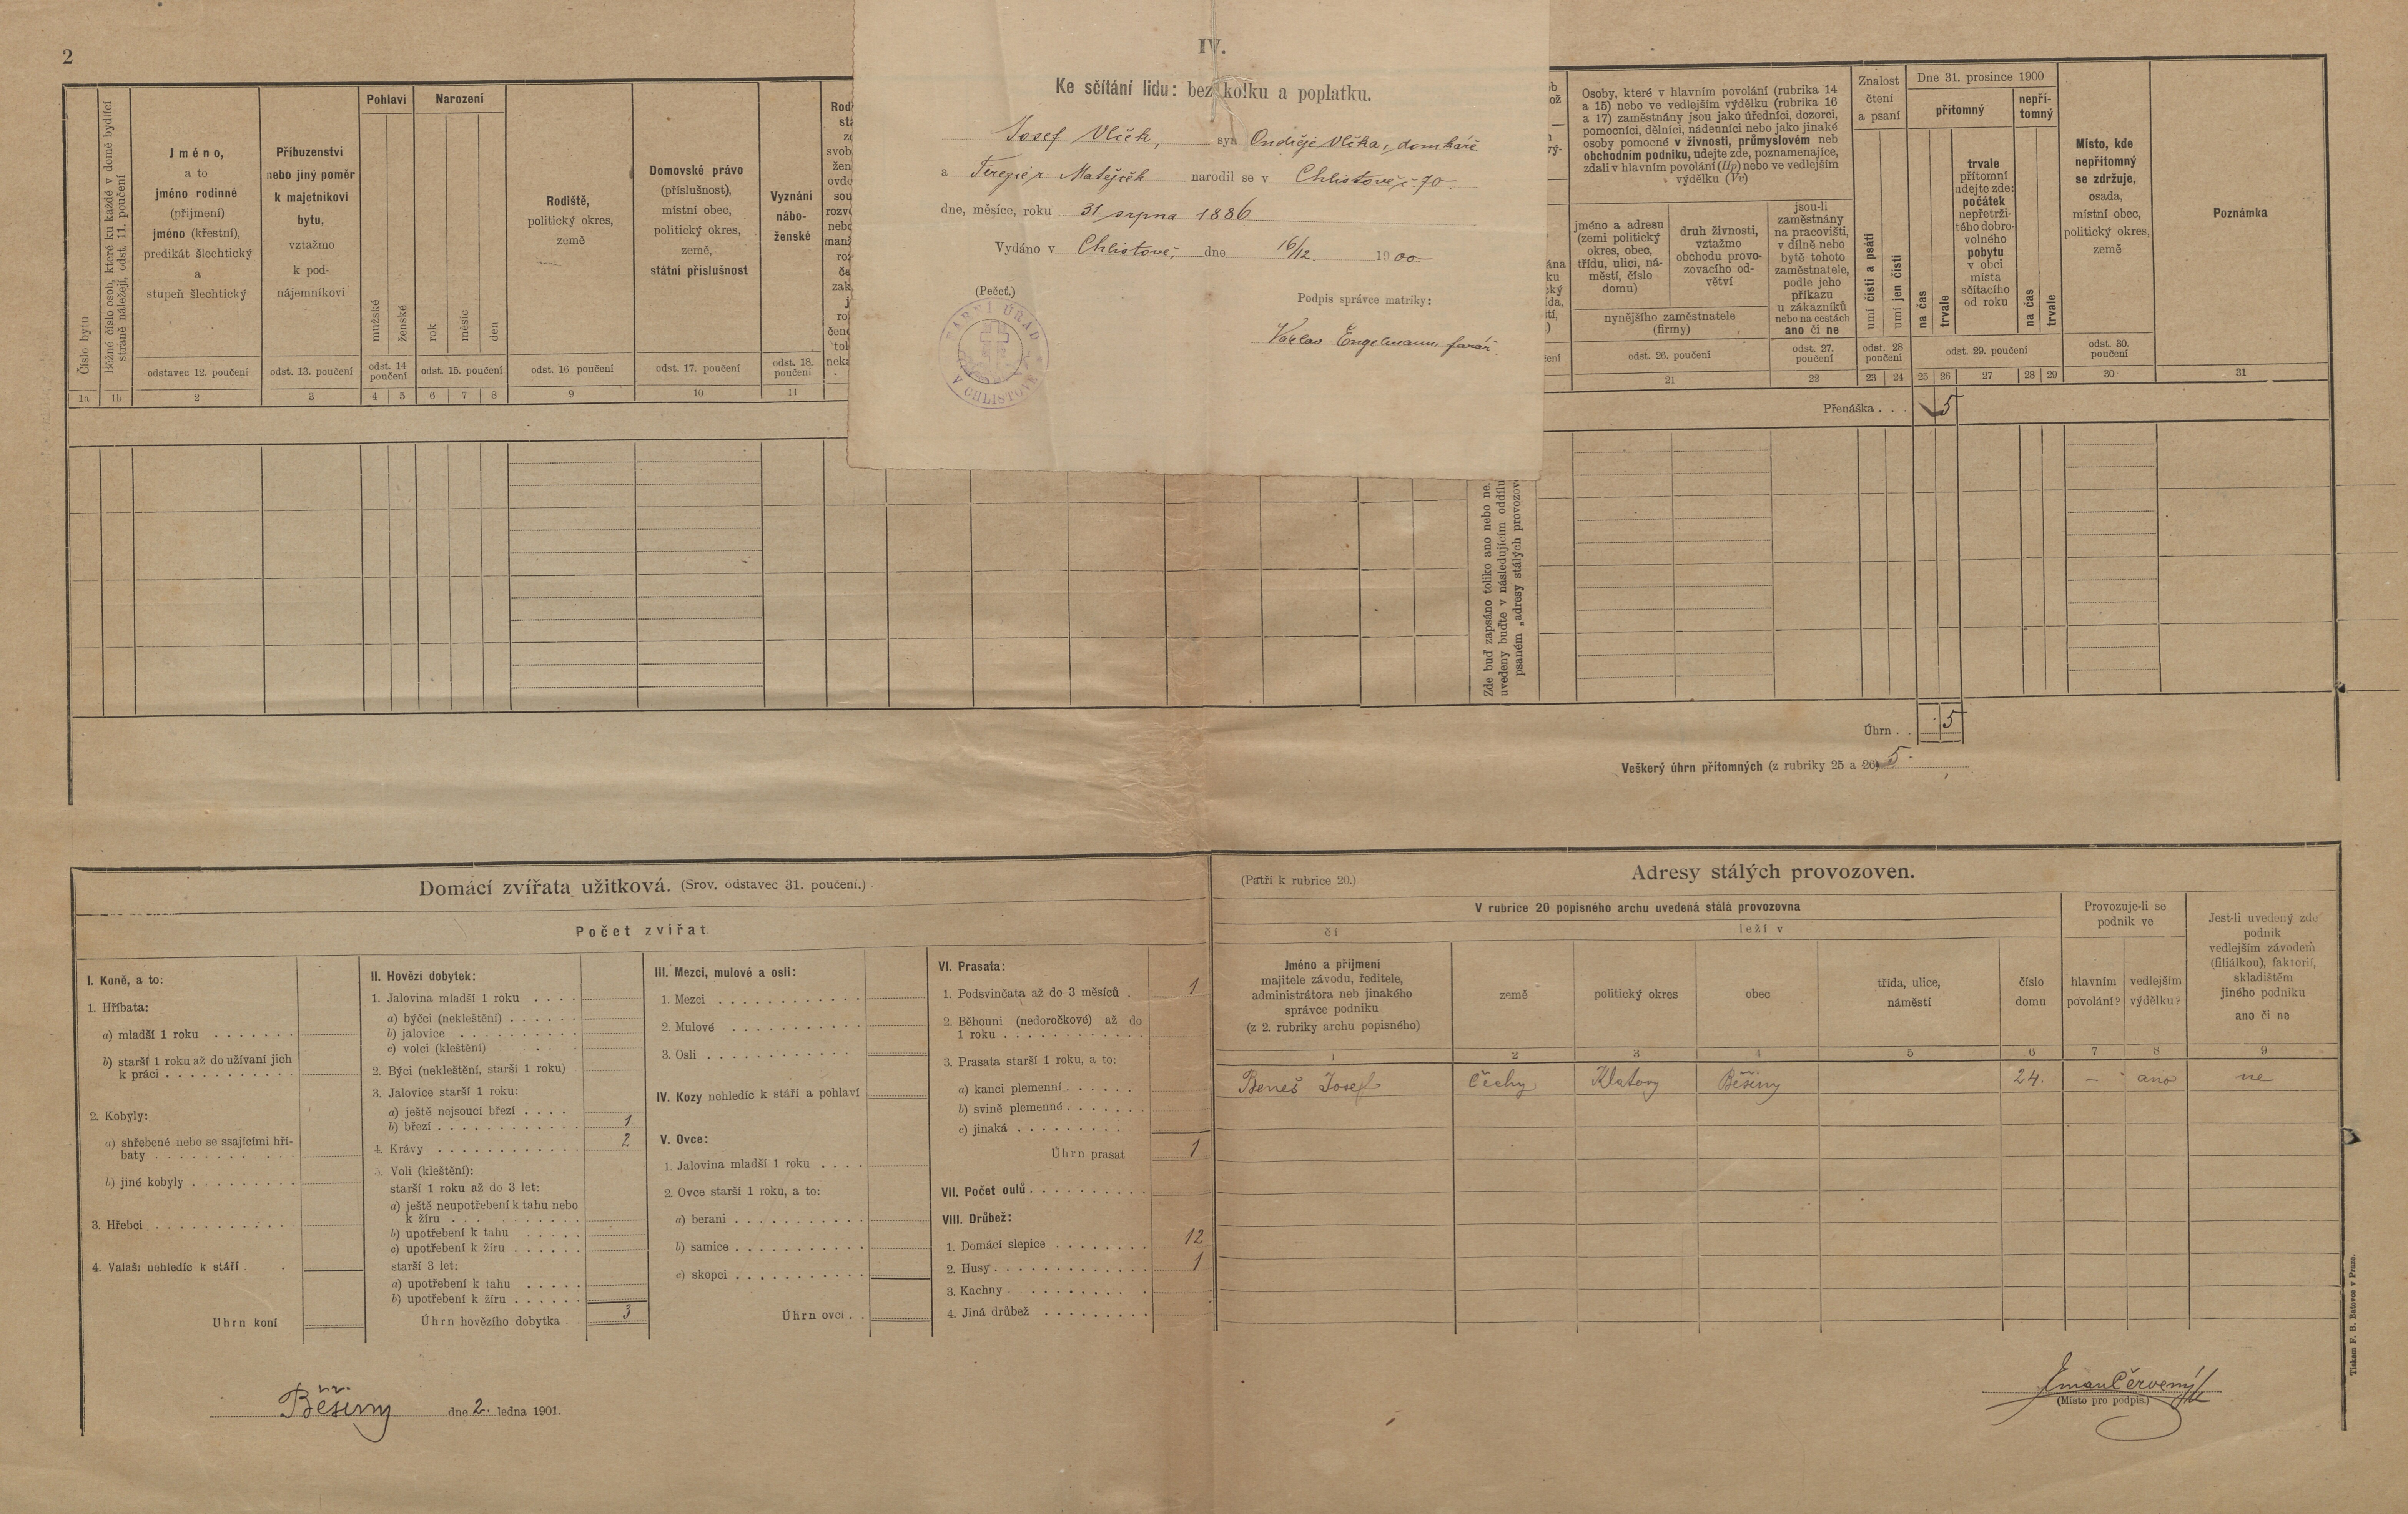 2
IV.
Ke sčítání lidu: bez kolku a poplatku.
Josef Vlček, syn Ondřeje Vlčka, domkáře
a Terezie r. Matějček narodil se v Chlistově č. 70
dne, měsíce, roku 31. srpna 1886
Vydáno v Chlistově, dne 16/12. 1900
(Pečeť.)
Podpis správce matriky:
Václav Engelmann, farář
FARNÍ ÚŘAD V CHLISTOVĚ
Číslo bytu
Běžné číslo osob, které ku každé v domě bydlící
straně náležejí, odst. 11. poučení
Jméno,
a to
jméno rodinné
(přijmení)
jméno (křestní),
predikát šlechtický
a
stupeň šlechtický
odstavec 12. poučení
Příbuzenství
nebo jiný poměr
k majetníkovi
bytu,
vztažmo
k pod-
nájemníkovi
odst. 13. poučení
Pohlaví
mužské
ženské
odst. 14
poučení
Narození
rok
měsíc
den
odst. 15. poučení
Rodiště,
politický okres,
země
odst. 16 poučení
Domovské právo
(příslušnost),
místní obec,
politický okres,
země,
státní příslušnost
odst. 17. poučení
Vyznání
nábo-
ženské
odst. 18.
poučení
Osoby, které v hlavním povolání (rubrika 14
a 15) nebo ve vedlejším výdělku (rubrika 16
a 17) zaměstnány jsou jako úředníci, dozorci,
pomocníci, dělníci, nádenníci nebo jako jinaké
osoby pomocné v živnosti, průmyslovém neb
obchodním podniku, udejte zde, poznamenajíce,
zdali v hlavním povolání (Hp) nebo ve vedlejším
výdělku (Vv)
jméno a adresu
(zemi politický
okres, obec,
třídu, ulici, ná-
městí, číslo
domu)
druh živnosti,
vztažmo
obchodu provo-
zovacího od-
větví
nynějšího zaměstnatele
(firmy)
odst. 26. poučení
jsou-li
zaměstnány
na pracovišti,
v dílně nebo
bytě tohoto
zaměstnatele,
podle jeho
příkazu
u zákazníků
nebo na cestách
ano či ne
odst. 27.
poučení
Znalost
čtení
a psaní
umí čísti a psáti
umí jen čísti
odst. 28
poučení
Dne 31. prosince 1900
přítomný
nepří-
tomný
na čas
trvale
trvale
přítomní
udejte zde:
počátek
nepřetrži-
tého dobro-
volného
pobytu
v obci
místa
sčítacího
od roku
na čas
trvale
odst. 29. poučení
Místo, kde
nepřítomný
se zdržuje,
osada,
místní obec,
politický okres,
země
odst. 30.
poučení
Poznámka
1a 1b 2 3 4 5 6 7 8 9 10 11 21 22 23 24 25 26 27 28 29 30 31
Přenáška . . . 5
Zde buď zapsáno toliko ano nebo ne,
uvedeny buďte v následujícím oddílu
psaném „adresy stálých provozov
Úhrn . . 5
Veškerý úhrn přítomných (z rubriky 25 a 26) 5.
Domácí zvířata užitková. (Srov. odstavec 31. poučení.)
Počet zvířat
I. Koně, a to:
1. Hříbata:
a) mladší 1 roku
b) starší 1 roku až do užívaní jich
k práci
2. Kobyly:
a) shřebené nebo se ssajícími hří-
baty
b) jiné kobyly
3. Hřebci
4. Valaši nehledíc k stáří
Úhrn koní
II. Hovězí dobytek:
1. Jalovina mladší 1 roku
a) býčci (nekleštění)
b) jalovice
c) volci (kleštění)
2. Býci (nekleštění, starší 1 roku)
3. Jalovice starší 1 roku:
a) ještě nejsoucí březí
b) březí 1
4. Krávy 2
5. Voli (kleštění):
starší 1 roku až do 3 let:
a) ještě neupotřebení k tahu nebo
k žíru
b) upotřebení k tahu
c) upotřebení k žíru
starší 3 let:
a) upotřebení k tahu
b) upotřebení k žíru
Úhrn hovězího dobytka 3
III. Mezci, mulové a osli:
1. Mezci
2. Mulové
3. Osli
IV. Kozy nehledíc k stáří a pohlaví
V. Ovce:
1. Jalovina mladší 1 roku
2. Ovce starší 1 roku, a to:
a) berani
b) samice
c) skopci
Úhrn ovcí
VI. Prasata:
1. Podsvinčata až do 3 měsíců 1
2. Běhouni (nedoročkové) až do
1 roku
3. Prasata starší 1 roku, a to:
a) kanci plemenní
b) svině plemenné
c) jinaká
Úhrn prasat 1
VII. Počet oulů
VIII. Drůbež:
1. Domácí slepice 12
2. Husy 1
3. Kachny
4. Jiná drůbež
(Patří k rubrice 20.)
Adresy stálých provozoven.
V rubrice 20 popisného archu uvedená stálá provozovna
čí
leží v
Jméno a příjmení
majitele závodu, ředitele,
administrátora neb jinakého
správce podniku
(z 2. rubriky archu popisného)
země
politický okres
obec
třída, ulice,
náměstí
číslo
domu
Provozuje-li se
podnik ve
hlavním
povolání?
vedlejším
výdělku?
Jest-li uvedený zde
podnik
vedlejším závodem
(filiálkou), faktorií,
skladištěm
jiného podniku
ano či ne
1 2 3 4 5 6 7 8 9
Beneš Josef Čechy Klatovy Běšiny 24. — ano ne
Běšiny dne 2. ledna 1901.
(Místo pro podpis.)
Tiskem F. B. Batovce v Praze.